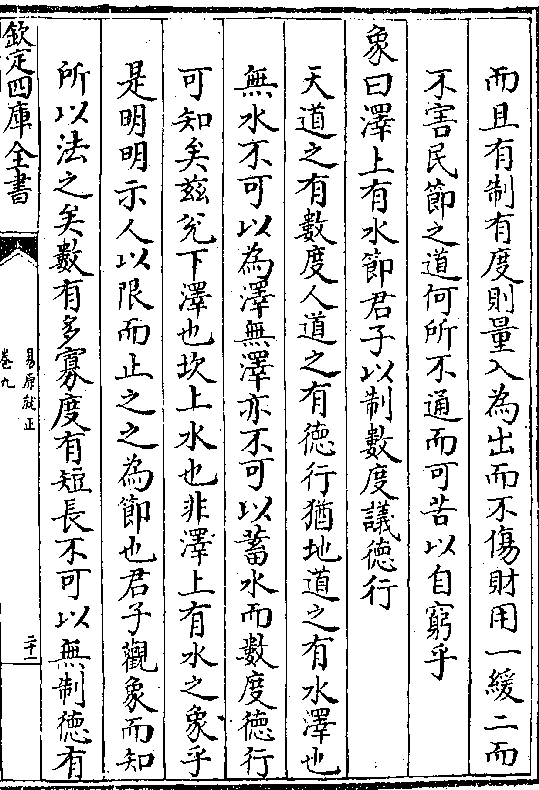 而且有制有度則量入為出而不傷財用一緩二而
不害民節之道何所不通而可苦以自窮乎
象曰澤上有水節君子以制數度議徳行
天道之有數度人道之有徳行猶地道之有水澤也
無水不可以為澤無澤亦不可以蓄水而數度徳行
可知矣兹兊下澤也坎上水也非澤上有水之象乎
是明明示人以限而止之之為節也君子觀象而知
所以法之矣數有多寡度有短長不可以無制徳有
欽定四庫全書
易原就正
卷九
二十一